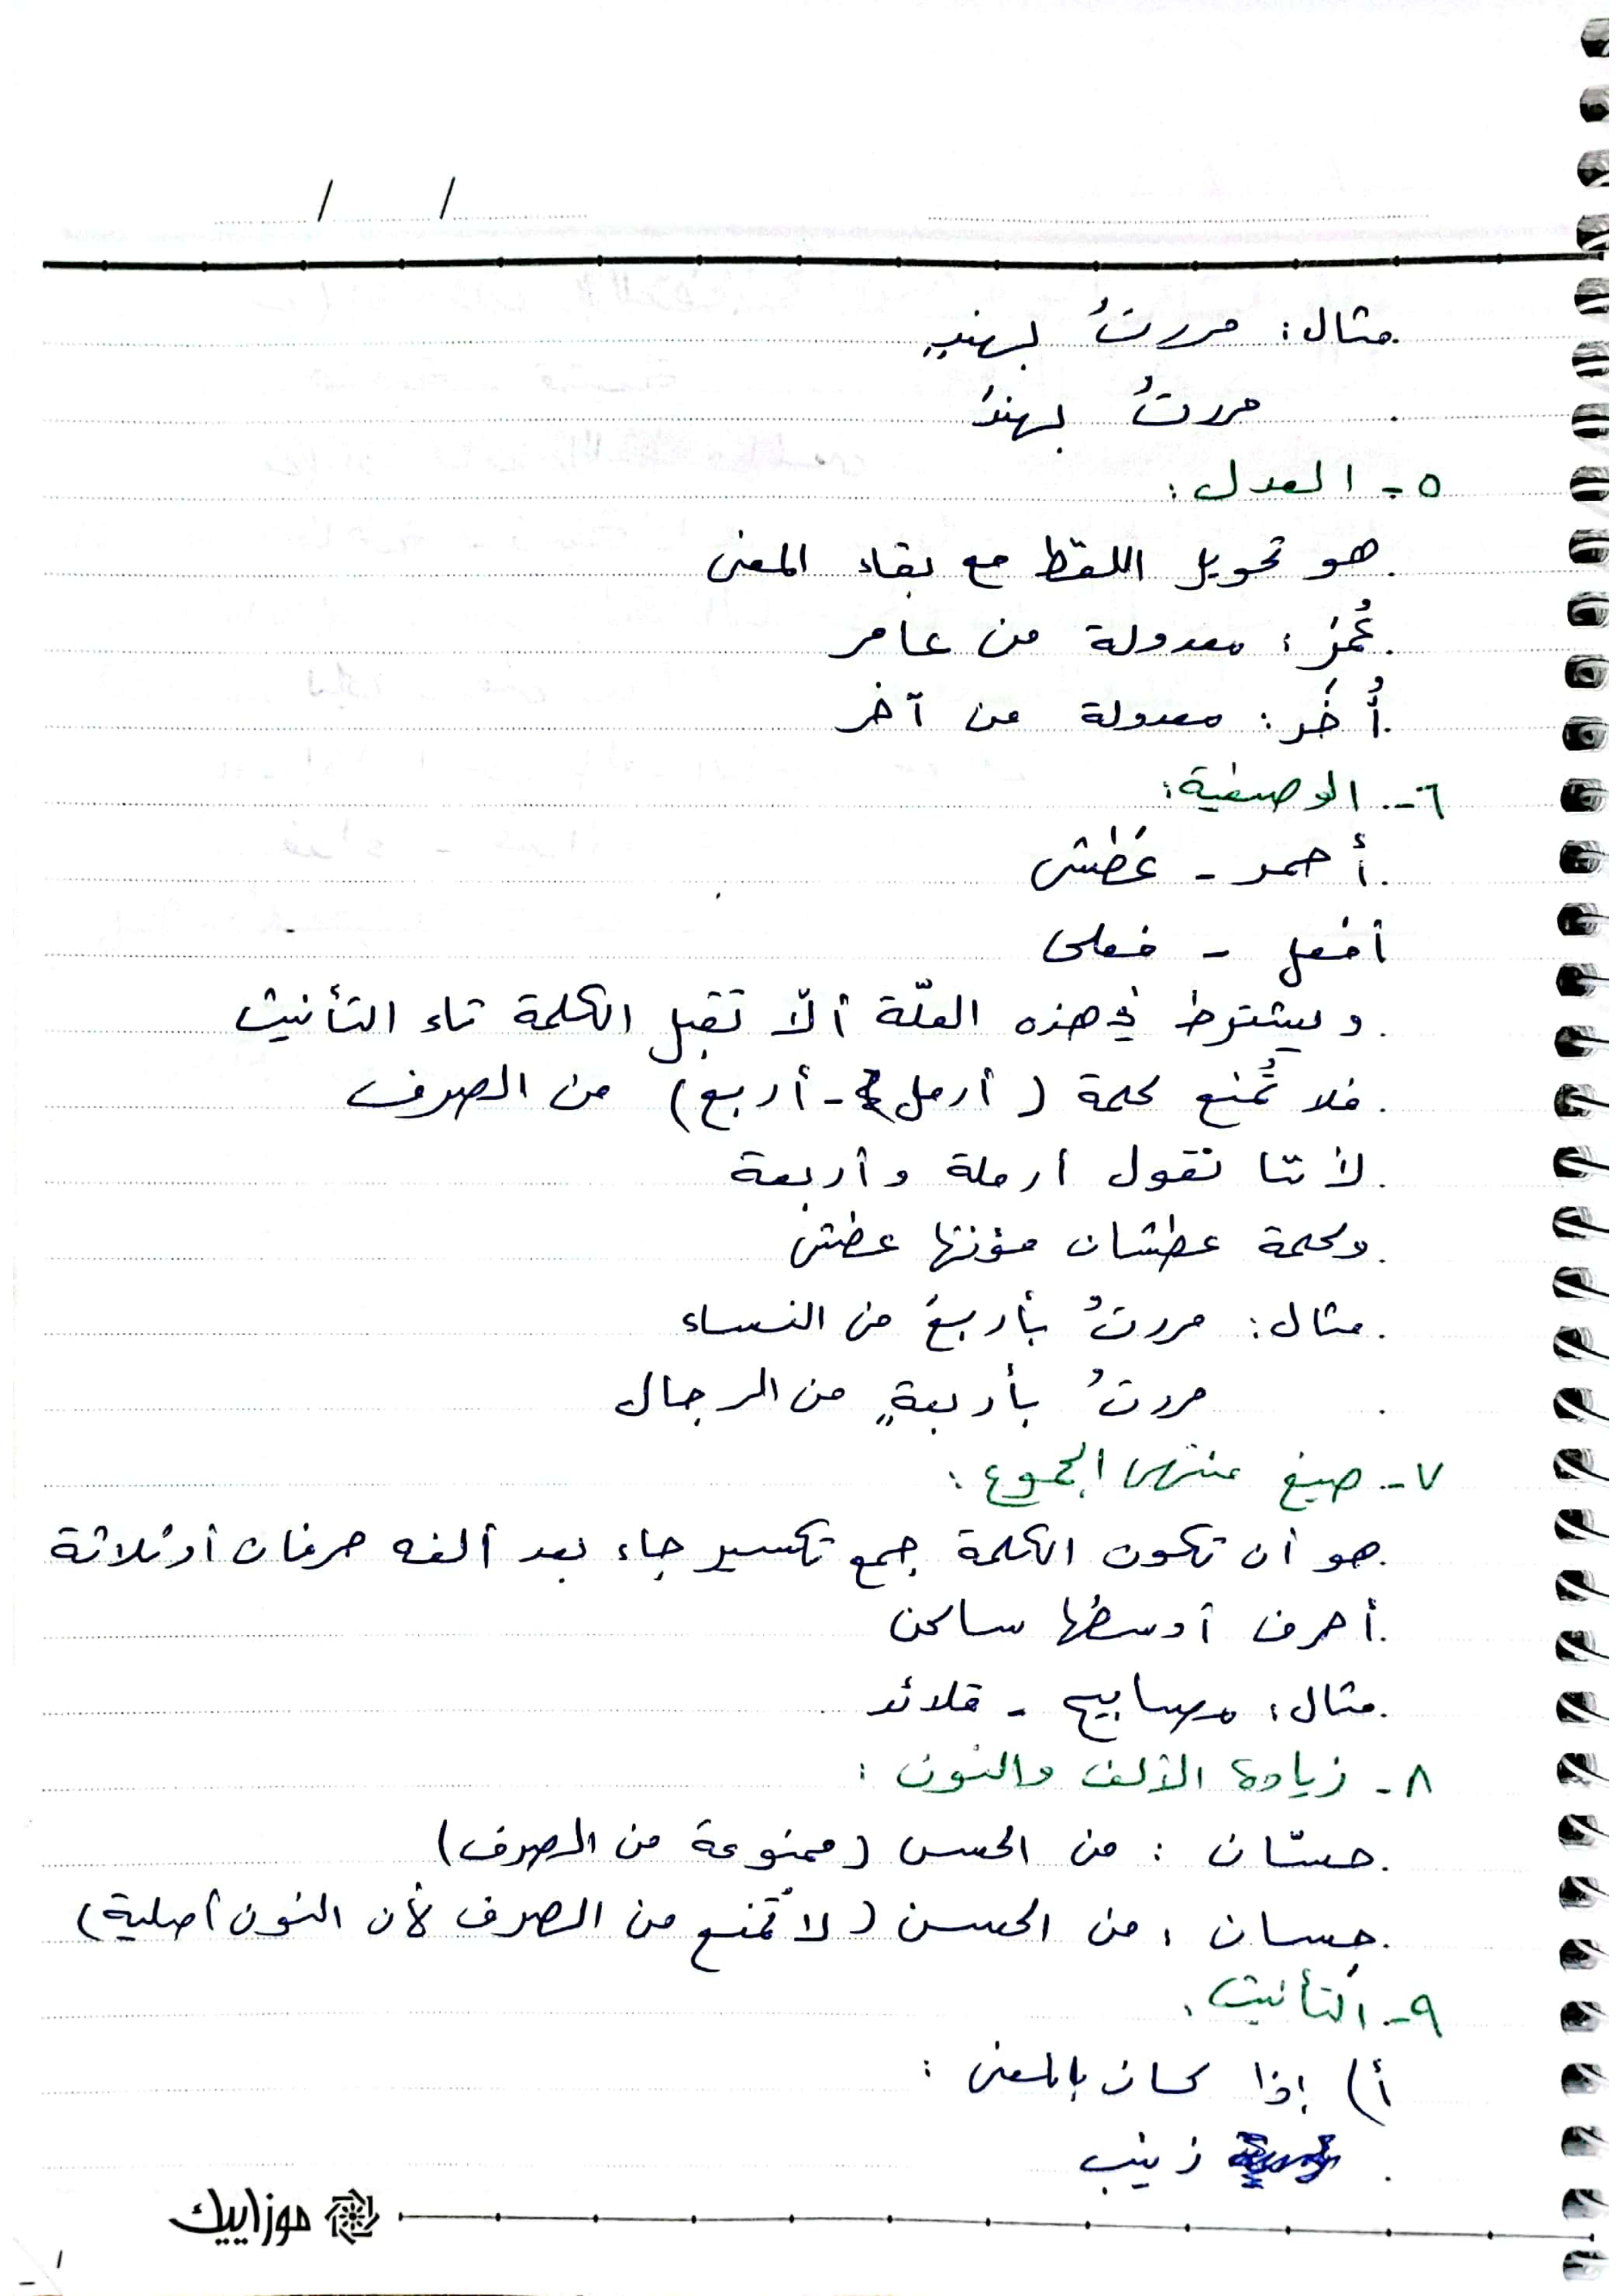 / /
مثال: مررتُ بهندٍ
مررتُ بهندَ
٥- العدل:
هو تحويل اللفظ مع بقاء المعنى
عُمَر: معدولة من عامر
أُخَر: معدولة من آخر
٦- الوصفية:
أحمر - عَطْشى
أفعل - فعلى
ويشترط في هذه العلّة ألّا تقبل الكلمة تاء التأنيث
فلا تُمنع كلمة (أرمل - أربع) من الصرف
لأننا نقول أرملة وأربعة
وكلمة عطشان مؤنثها عطشى
مثال: مررتُ بأربعَ من النساء
مررتُ بأربعةٍ من الرجال
٧- صيغ منتهى الجموع:
هو أن تكون الكلمة جمع تكسير جاء بعد ألفه حرفان أو ثلاثة
أحرف أوسطها ساكن
مثال: مصابيح - قلائد
٨- زيادة الألف والنون:
حسّان: من الحس (ممنوعة من الصرف)
حِسان: من الحسن (لا تُمنع من الصرف لأن النون أصلية)
٩- التأنيث:
أ) إذا كان بالمعنى:
زينب
موزاييك